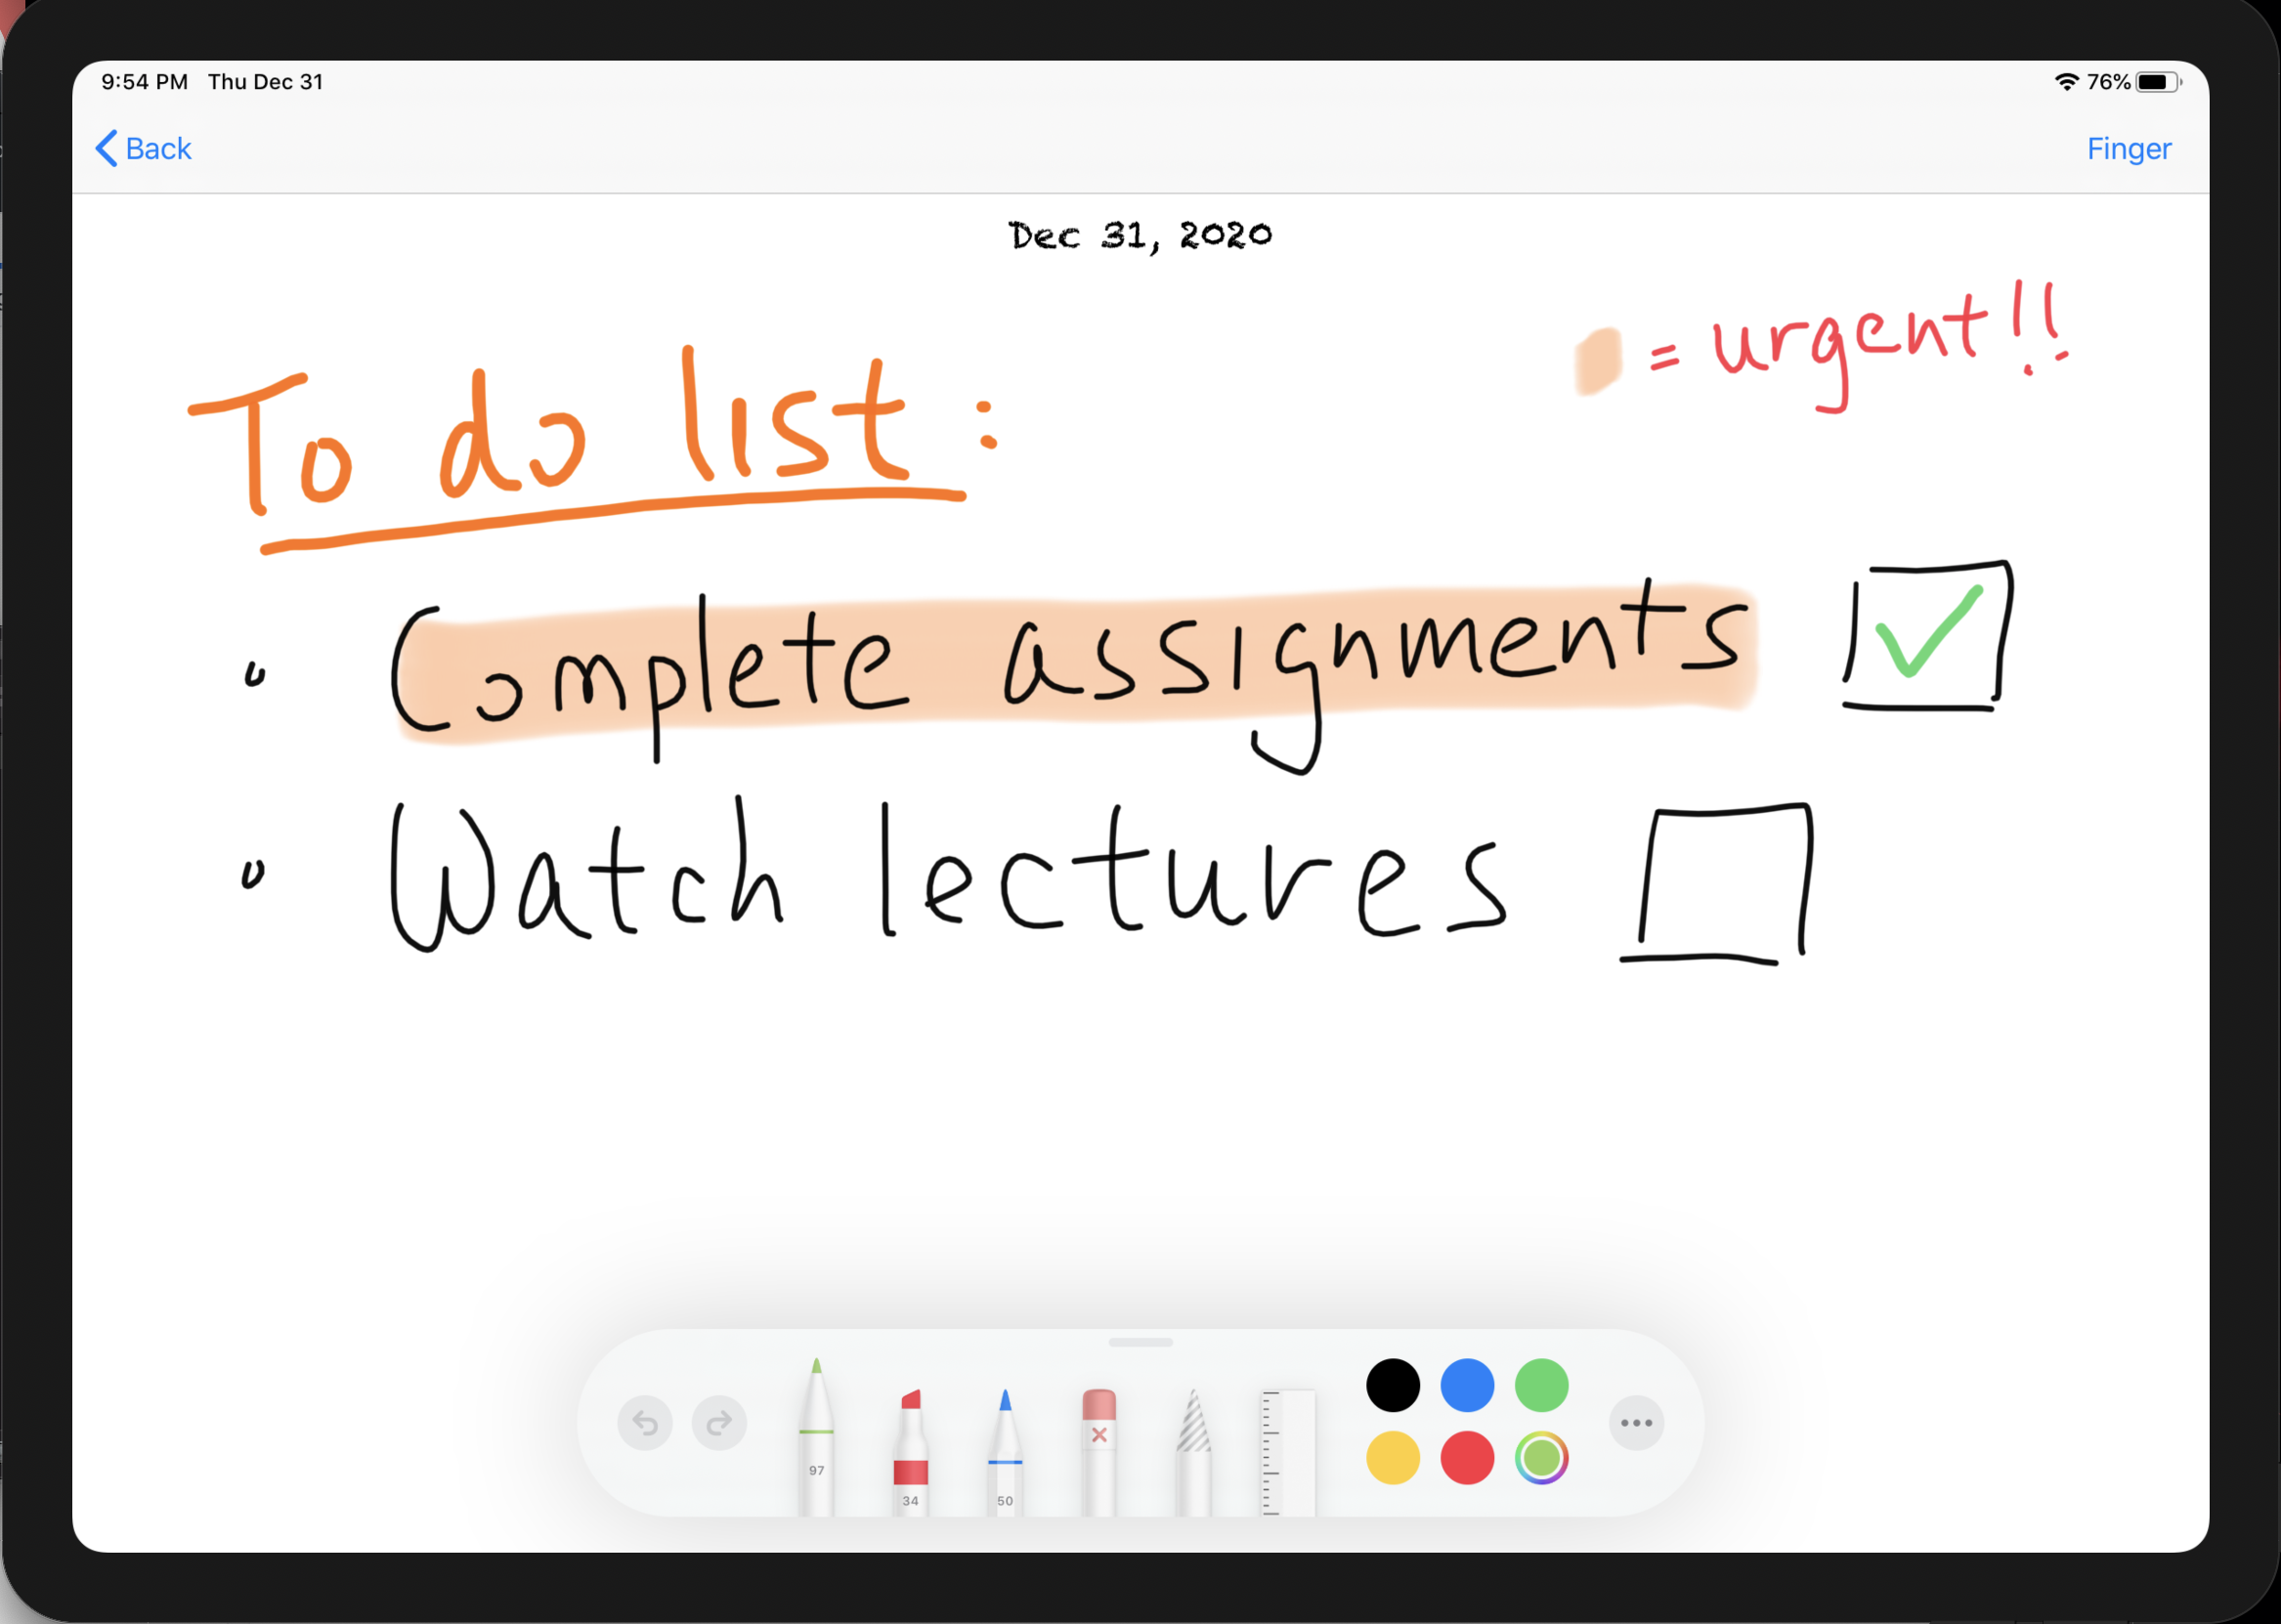 9:54 PM Thu Dec 31 76%
Back Finger
Dec 31, 2020
= urgent!!
To do list:
Complete assignments
Watch lectures
97 34 50